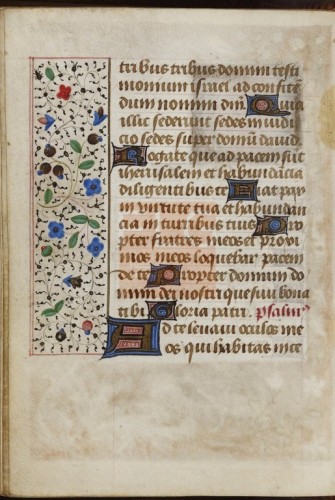 tribus tribus domini testi
monium israel ad confitē
dum nomini dn̄i Quia
illic sederunt sedes in iudi
cio sedes super domū dauid
Rogate que ad pacem sūt
iherusalem et habundācia
diligentibus te Fiat pax
in uirtute tua et habundan
cia in turribus tuis Pro
pter fratres meos et proxi
mos meos loquebar pacem
de te Propter domum do
mini dei nostri quesiui bona
tibi Gloria patri. psalm9
Ad te leuaui oculos me
os qui habitas in ce